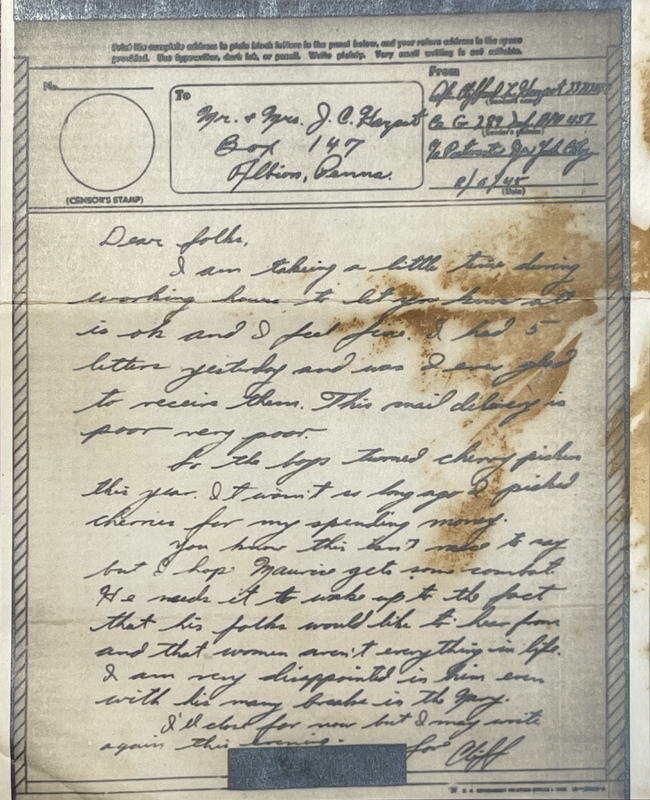 Print the complete address in plain block letters in the panel below, and your return address in the space
provided. Use typewriter, dark ink, or pencil. Write plainly. Very small writing is not suitable.
No.
(CENSOR'S STAMP)
To
Mr. & Mrs. J. C.
Box 147
Albion, Penna.
From
(Sender's name)
Co G 289 Inf. APO 451
(Sender's address)
New York City
(Date)
Dear folks,
I am taking a little time during
working hours to let you know all
is ok and I feel fine. I had 5
letters yesterday and was I ever glad
to receive them. This mail delivery is
poor very poor.
So the boys turned cherry pickers
this year. It wasn't so long ago I picked
cherries for my spending money.
You know this isn't nice to say
but I hope Maurice gets some combat.
He needs it to wake up to the fact
that his folks would like to hear from
and that women aren't everything in life.
I am very disappointed in him even
with his many breaks in the Navy.
I'll close for now but I may write
again this evening. Love Cliff